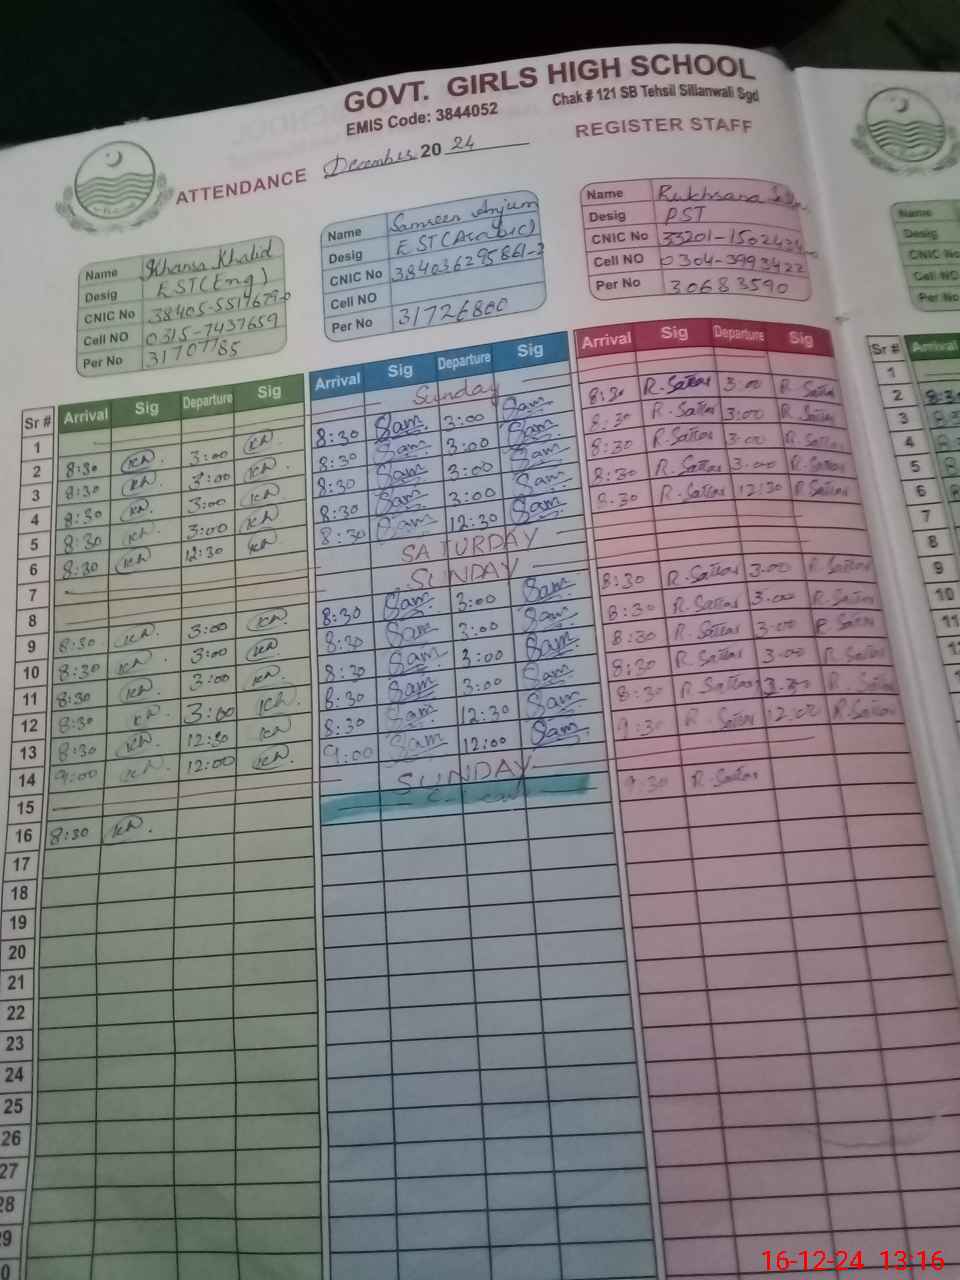 GOVT. GIRLS HIGH SCHOOL
EMIS Code: 3844052 Chak # 121 SB Tehsil Sillanwali Sgd
ATTENDANCE December 2024 REGISTER STAFF
Name Khansa Khalid
Desig EST (Eng)
CNIC No 38405-5514679-0
Cell NO 0315-7437659
Per No 31707785
Name Samreen Anjum
Desig EST (Arabic)
CNIC No 384036295861-2
Cell NO
Per No 31726800
Name Rukhsana
Desig PST
CNIC No 33201-1502424-0
Cell NO 0304-3993422
Per No 30683590
Name
Desig
CNIC No
Cell NO
Per No
Sr # Arrival Sig Departure Sig Arrival Sig Departure Sig Arrival Sig Departure Sig Sr # Arrival
1 Sunday 1
2 8:30 Kh 3:00 Kh 8:30 Sam 3:00 Sam 8:30 R-Sattar 3:00 R-Sattar 2
3 8:30 Kh 3:00 Kh 8:30 Sam 3:00 Sam 8:30 R-Sattar 3:00 R-Sattar 3
4 8:30 Kh 3:00 Kh 8:30 Sam 3:00 Sam 8:30 R-Sattar 3:00 R-Sattar 4
5 8:30 Kh 3:00 Kh 8:30 Sam 3:00 Sam 8:30 R-Sattar 3:00 R-Sattar 5
6 8:30 Kh 12:30 Kh 8:30 Sam 12:30 Sam 8:30 R-Sattar 12:30 R-Sattar 6
7 SATURDAY 7
8 SUNDAY 8
9 8:30 Kh 3:00 Kh 8:30 Sam 3:00 Sam 8:30 R-Sattar 3:00 R-Sattar 9
10 8:30 Kh 3:00 Kh 8:30 Sam 3:00 Sam 8:30 R-Sattar 3:00 R-Sattar 10
11 8:30 Kh 3:00 Kh 8:30 Sam 3:00 Sam 8:30 R-Sattar 3:00 R-Sattar 11
12 8:30 Kh 3:00 Kh 8:30 Sam 3:00 Sam 8:30 R-Sattar 3:00 R-Sattar
13 8:30 Kh 12:30 Kh 8:30 Sam 12:30 Sam 8:30 R-Sattar R-Sattar
14 9:00 Kh 12:00 Kh 9:00 Sam 12:00 Sam 9:30 R-Sattar 12:00 R-Sattar
15 SUNDAY
16 8:30 Kh 9:30 R-Sattar
17
18
19
20
21
22
23
24
25
26
27
28
29
16-12-24 13:16